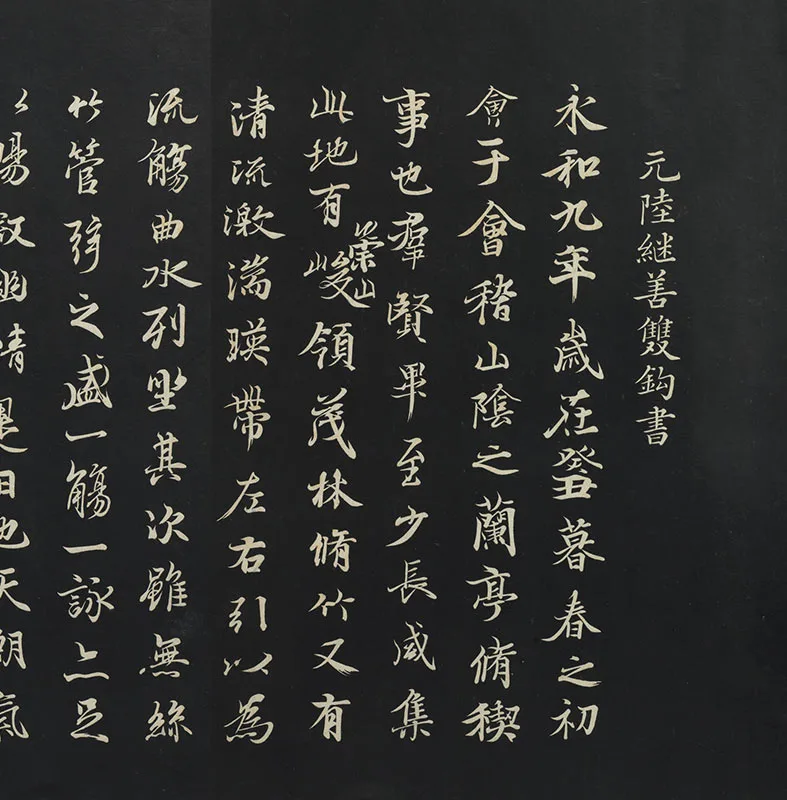 元陸継善雙鈎書
永和九年歲在癸丑暮春之初
會于會稽山陰之蘭亭脩稧
事也羣賢畢至少長咸集
此地有崇山峻領茂林脩竹又有
清流激湍暎帶左右引以為
流觴曲水列坐其次雖無絲
竹管弦之盛一觴一詠亦足
以暢敘幽情是日也天朗氣